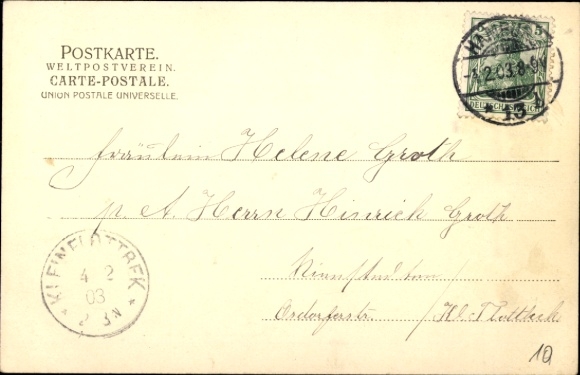 POSTKARTE.
WELTPOSTVEREIN.
CARTE-POSTALE.
UNION POSTALE UNIVERSELLE.
HAMBURG 5
-4.2.03.8-9V
* 13 *
DEUTSCHES REICH
Fräulein Helene Groth
p. A. Herrn Hinrich Groth
Osdorferstr. Kl. Flottbek
KLEINFLOTTBEK
4 2
03
2-3N
10